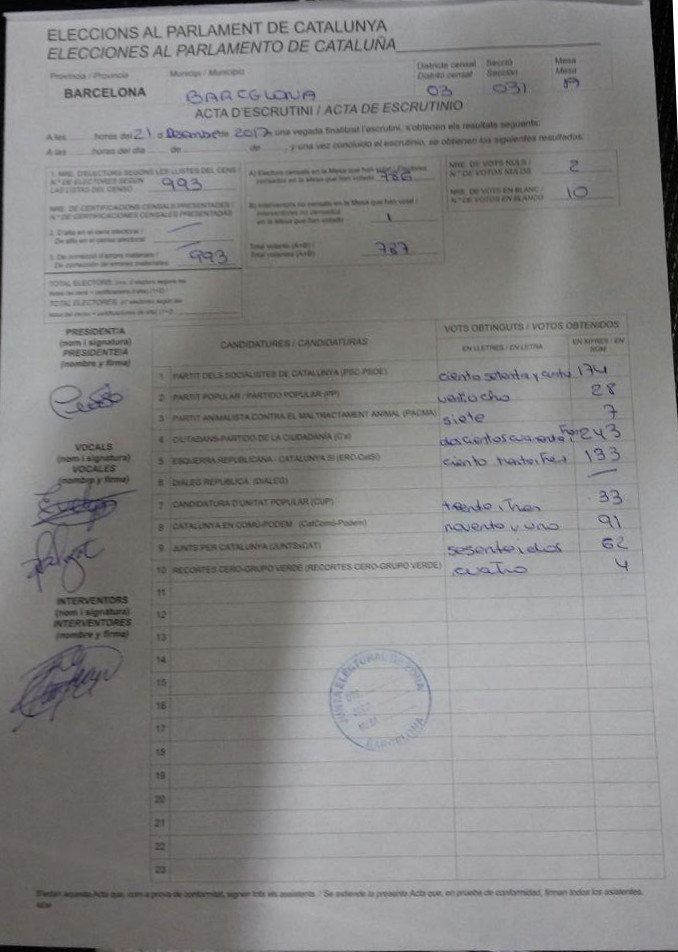 ELECCIONS AL PARLAMENT DE CATALUNYA
ELECCIONES AL PARLAMENTO DE CATALUÑA
Província / Provincia Municipi / Municipio Districte censal Secció Mesa
Distrito censal Sección Mesa
BARCELONA BARCELONA 03 031
ACTA D'ESCRUTINI / ACTA DE ESCRUTINIO
A les hores del 21 de 2017 una vegada finalitzat l'escrutini, s'obtenen els resultats següents:
A las horas del día de de y una vez concluido el escrutinio, se obtienen los siguientes resultados:
1. NRE. D'ELECTORS SEGONS LES LLISTES DEL CENS / Nº DE ELECTORES SEGÚN LAS LISTAS DEL CENSO 993
NRE. DE CERTIFICACIONS CENSALS PRESENTADES / Nº DE CERTIFICACIONES CENSALES PRESENTADAS
2. D'alta en el cens electoral / De alta en el censo electoral:
3. De correcció d'errors materials / De corrección de errores materiales: 993
A) Electors censats en la Mesa que han votat / Electores censados en la Mesa que han votado 786
B) Interventors no censats en la Mesa que han votat / Interventores no censados en la Mesa que han votado 1
Total votants (A+B) / Total votantes (A+B) 787
NRE. DE VOTS NULS / N.º DE VOTOS NULOS 2
NRE. DE VOTS EN BLANC / N.º DE VOTOS EN BLANCO 10
PRESIDENT/A
(nom i signatura)
PRESIDENTE/A
(nombre y firma)
VOCALS
(nom i signatura)
VOCALES
(nombre y firma)
INTERVENTORS
(nom i signatura)
INTERVENTORES
(nombre y firma)
CANDIDATURES / CANDIDATURAS VOTS OBTINGUTS / VOTOS OBTENIDOS
EN LLETRES / EN LETRA EN XIFRES / EN NÚM.
1 PARTIT DELS SOCIALISTES DE CATALUNYA (PSC-PSOE) ciento setenta y 174
2 PARTIT POPULAR / PARTIDO POPULAR (PP) 28
3 PARTIT ANIMALISTA CONTRA EL MALTRACTAMENT ANIMAL (PACMA) siete 7
4 CIUTADANS-PARTIDO DE LA CIUDADANÍA (C's) 243
5 ESQUERRA REPUBLICANA - CATALUNYA SÍ (ERC-CatSí) ciento 133
6 DIÀLEG REPUBLICÀ (DIÀLEG)
7 CANDIDATURA D'UNITAT POPULAR (CUP) 33
8 CATALUNYA EN COMÚ-PODEM (CatComú-Podem) noventa y uno 91
9 JUNTS PER CATALUNYA (JUNTSxCAT) 62
10 RECORTES CERO-GRUPO VERDE (RECORTES CERO-GRUPO VERDE) cuatro 4
11
12
13
14
15
16
17
18
19
20
21
22
23
JUNTA ELECTORAL DE ZONA
BARCELONA
S'estén aquesta Acta que, com a prova de conformitat, signen tots els assistents. / Se extiende la presente Acta que, en prueba de conformidad, firman todos los asistentes.